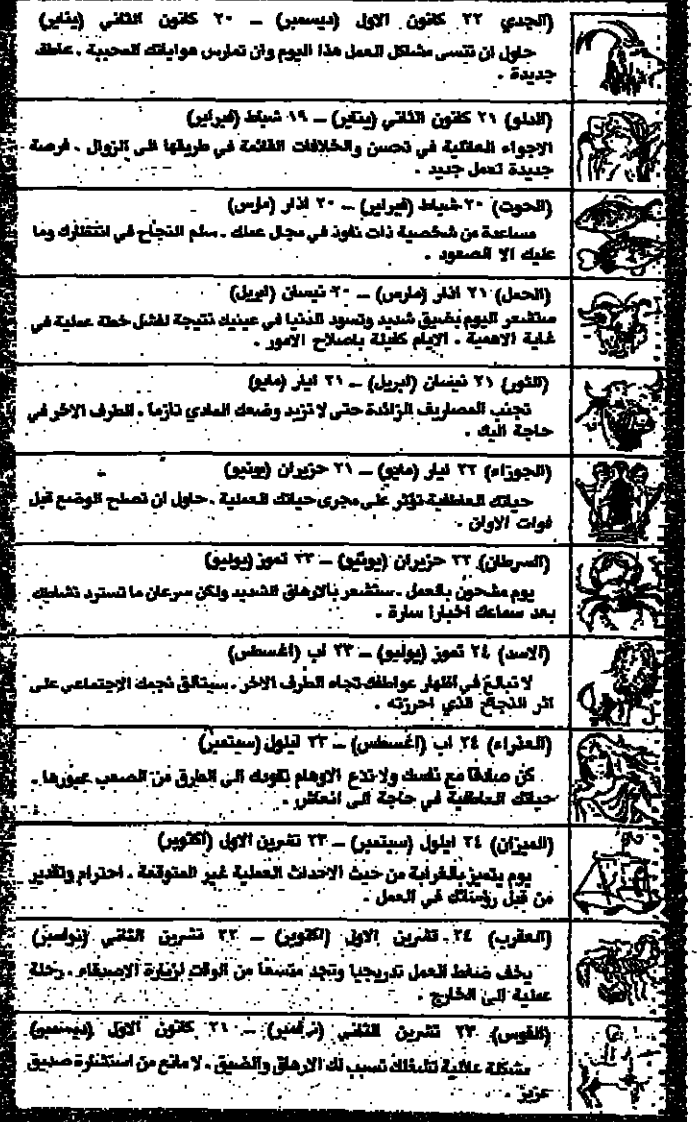 (الجدي) ٢٢ كانون الاول (ديسمبر) ــ ٢٠ كانون الثاني (يناير)
حاول ان تنسى مشاكل العمل هذا اليوم وان تمارس هواياتك المحببة . عاطفة
جديدة .
(الدلو) ٢١ كانون الثاني (يناير) ــ ١٩ شباط (فبراير)
الاجواء العائلية في تحسن والخلافات القائمة في طريقها الى الزوال . فرصة
جديدة لعمل جديد .
(الحوت) ٢٠ شباط (فبراير) ــ ٢٠ اذار (مارس)
مساعدة من شخصية ذات نفوذ في مجال عملك . سلم النجاح في انتظارك وما
عليك الا الصعود .
(الحمل) ٢١ اذار (مارس) ــ ٢٠ نيسان (ابريل)
ستشعر اليوم بضيق شديد وتسود الدنيا في عينيك نتيجة لفشل خطة عملية في
غاية الاهمية . الايام كفيلة باصلاح الامور .
(الثور) ٢١ نيسان (ابريل) ــ ٢١ ايار (مايو)
تجنب المصاريف الزائدة حتى لا تزيد وضعك المادي تازما . الطرف الاخر في
حاجة اليك .
(الجوزاء) ٢٢ ايار (مايو) ــ ٢١ حزيران (يونيو)
حياتك العاطفية تؤثر على مجرى حياتك العملية . حاول ان تصلح الوضع قبل
فوات الاوان .
(السرطان) ٢٢ حزيران (يونيو) ــ ٢٣ تموز (يوليو)
يوم مشحون بالعمل . ستشعر بالارهاق الشديد ولكن سرعان ما تسترد نشاطك
بعد سماعك اخبارا سارة .
(الاسد) ٢٤ تموز (يوليو) ــ ٢٣ اب (اغسطس)
لا تبالغ في اظهار عواطفك تجاه الطرف الاخر . سيتالق نجمك الاجتماعي على
اثر النجاح الذي احرزته .
(العذراء) ٢٤ اب (اغسطس) ــ ٢٣ ايلول (سبتمبر)
كن صادقا مع نفسك ولا تدع الاوهام تقودك الى الطرق من الصعب عبورها .
حياتك العاطفية في حاجة الى انعاش .
(الميزان) ٢٤ ايلول (سبتمبر) ــ ٢٣ تشرين الاول (اكتوبر)
يوم يتميز بالغرابة من حيث الاحداث العملية غير المتوقعة . احترام وتقدير
من قبل رؤسائك في العمل .
(العقرب) ٢٤ تشرين الاول (اكتوبر) ــ ٢٢ تشرين الثاني (نوفمبر)
يخف ضغط العمل تدريجيا وتجد متسعا من الوقت لزيارة الاصدقاء . رحلة
عملية الى الخارج .
(القوس) ٢٣ تشرين الثاني (نوفمبر) ــ ٢١ كانون الاول (ديسمبر)
مشكلة عائلية تشغلك تسبب لك الارهاق والضيق . لا مانع من استشارة صديق
عزيز .